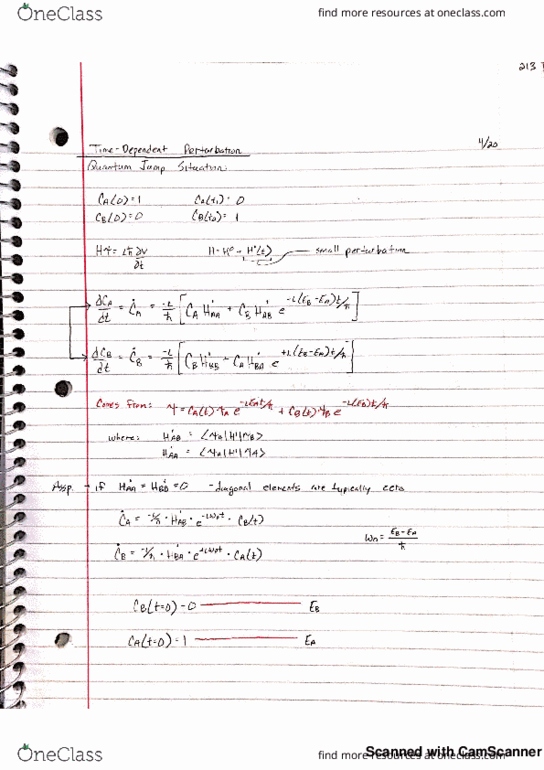 OneClass
find more resources at oneclass.com
213
4/20
Time-Dependent Perturbation
Quantum Jump Situation:
C_A(0)=1 C_A(t_0)=0
C_B(0)=0 C_B(t_0)=1
HΨ = iħ ∂Ψ/∂t H = H⁰ + H'(t) small perturbation
dC_A/dt = Ċ_A = -i/ħ [C_A H'_AA + C_B H'_AB e^{-i(E_B-E_A)t/ħ}]
dC_B/dt = Ċ_B = -i/ħ [C_B H'_BB - C_A H'_BA e^{+i(E_B-E_A)t/ħ}]
Comes from: Ψ = C_A(t) Ψ_A e^{-iE_A t/ħ} + C_B(t) Ψ_B e^{-i(E_B)t/ħ}
where: H'_AB = ⟨Ψ_A|H'|Ψ_B⟩
H'_AA = ⟨Ψ_A|H'|Ψ_A⟩
Assp. - if H'_AA = H'_BB = 0 - diagonal elements are typically zero
Ċ_A = -i/ħ · H'_AB · e^{-iω_0t} · C_B(t)
ω_0 = (E_B - E_A)/ħ
Ċ_B = -i/ħ · H'_BA · e^{+iω_0t} · C_A(t)
C_B(t=0) = 0 E_B
C_A(t=0) = 1 E_A
OneClass
find more resources at oneclass.com
Scanned with CamScanner